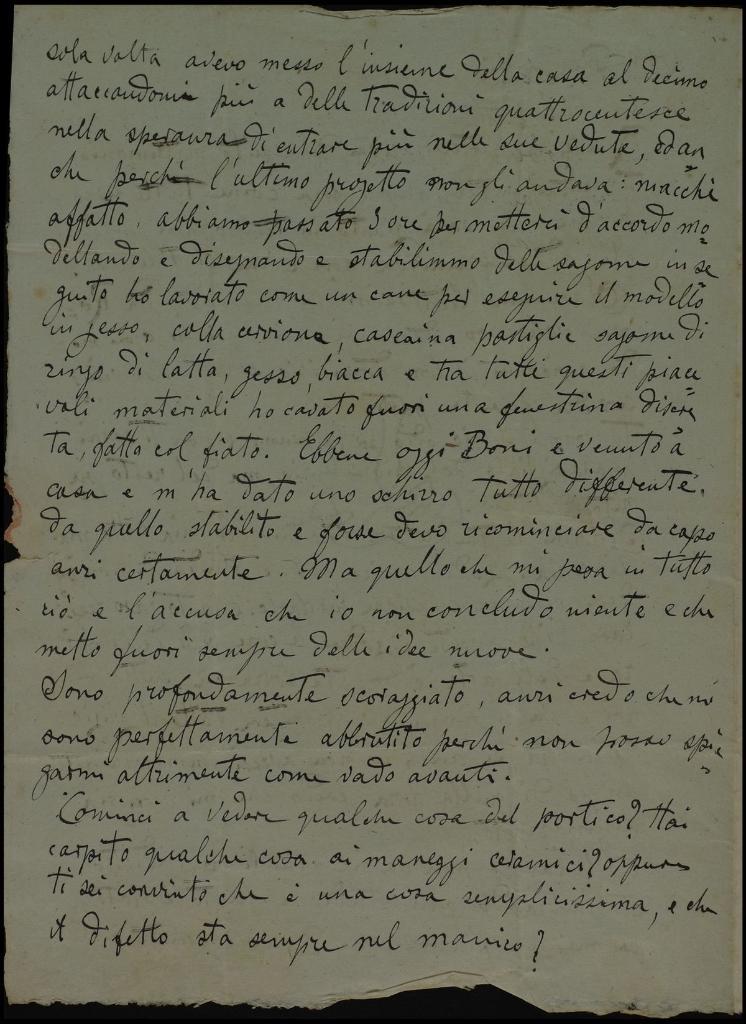 sola volta avevo messo l'insieme della casa al decimo
attaccandomi più a delle tradizioni quattrocentesce
nella speranza di entrare più nelle sue vedute, ed an
che perchè l'ultimo progetto non gli andava: macchè
affatto, abbiamo passato 3 ore per metterci d'accordo mo=
dellando e disegnando e stabilimmo delle sagome in se
guito ho lavorato come un cane per eseguire il modello
in gesso, colla cerviona, caseaina pastiglie sagome di
zingo di latta, gesso, biacca e tra tutti questi piace=
voli materiali ho cavato fuori una fenestrina discre=
ta, fatta col fiato. Ebbene oggi Boni e venuto a
casa e m'ha dato uno schizzo tutto differente.
da quello stabilito e forse devo ricominciare da capo
anzi certamente. Ma quello che mi pesa in tutto
ciò e l'accusa che io non concludo niente e che
metto fuori sempre delle idee nuove.
Sono profondamente scoraggiato, anzi credo che mi
sono perfettamente abbrutito perchè non posso spie=
garmi altrimente come vado avanti.
Cominci a vedere qualche cosa del portico? Hai
carpito qualche cosa ai maneggi ceramici? oppure
ti sei convinto che è una cosa semplicissima, e che
il difetto sta sempre nel manico?